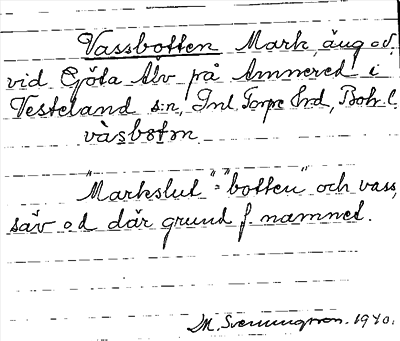 Vassbotten Mark, äng o.d.
vid Göta Älv på Amnered i
Vesterland s:n, Inl. Torpe Hrd, Boh. l.
vàsbotn
"Markslut" = "botten" och vass,
säv o d där grund f. namnet.
M. Svenungsson. 1970.